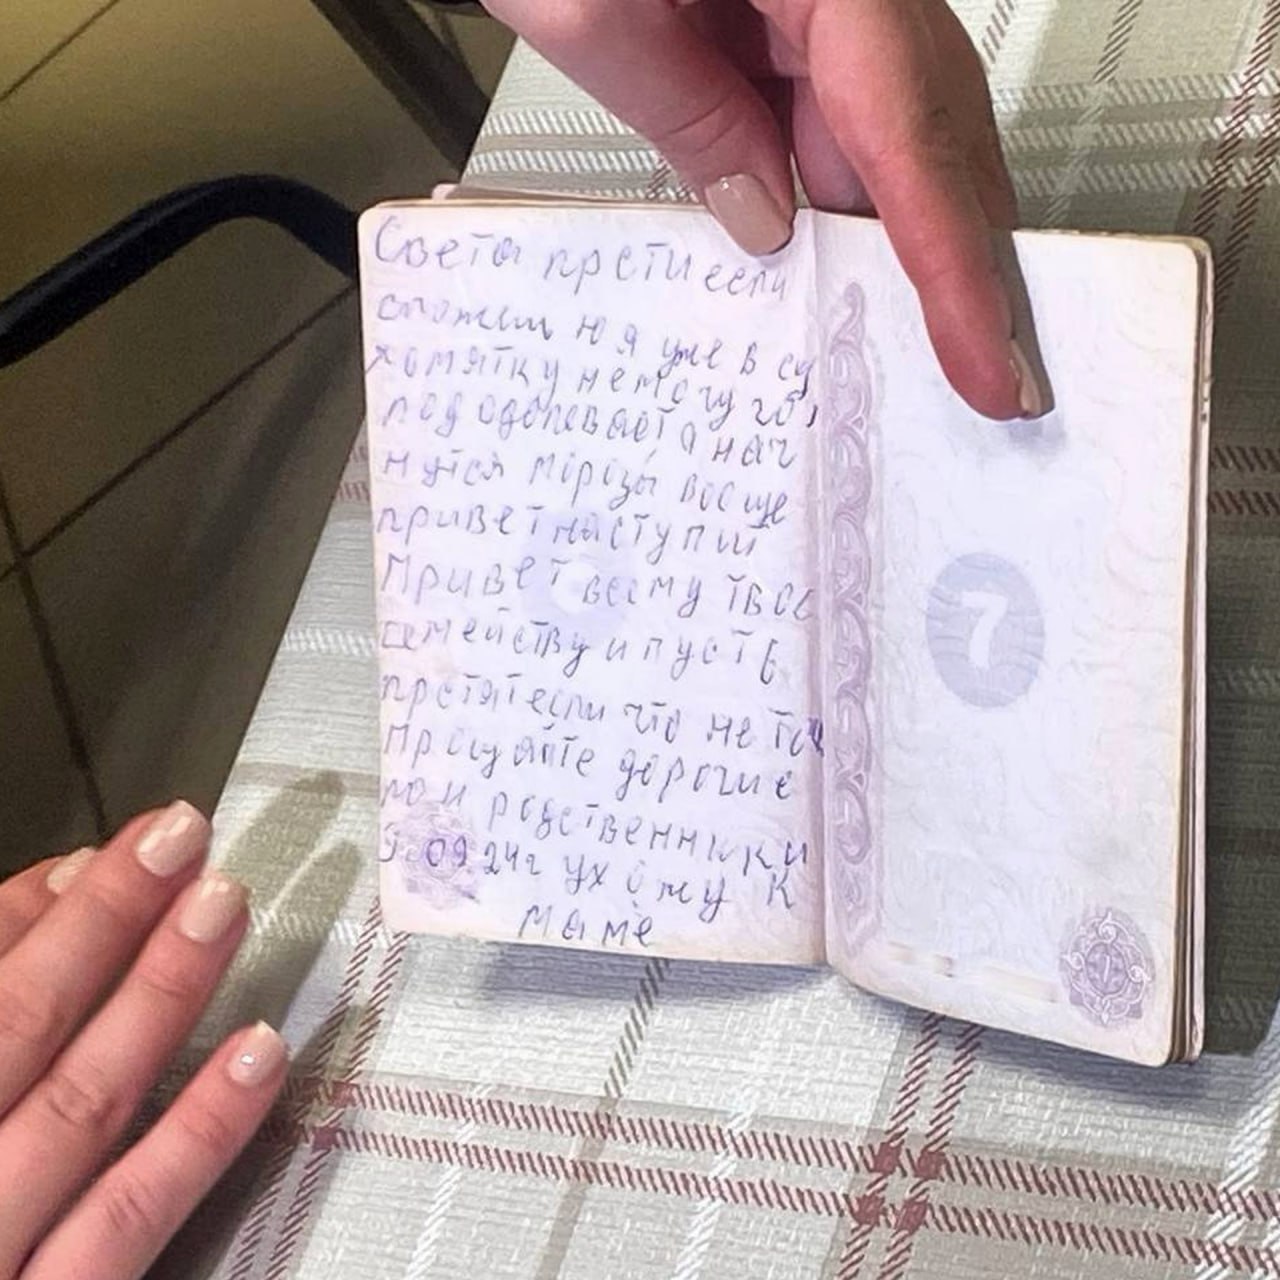 Света прсти если
сможешь Ю я уже в су
хомятку немогу го
лод одолевает а нач
нутся морозы вооще
привет наступит
Привет всему твое
семейству и пусть
прстят если что не так
Прощайте дорогие
мои родственники
9.09.24г ухожу к
маме
7
7